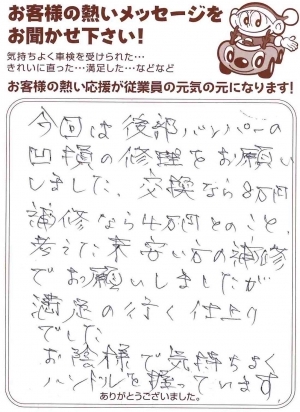 お客様の熱いメッセージを
お聞かせ下さい!
気持ちよく車検を受けられた…
きれいに直った…満足した…などなど
お客様の熱い応援が従業員の元気の元になります!
今回は後部バンパーの
凹損の修理をお願い
しました、交換なら8万円
補修なら4万円とのこと、
考えた末安い方の補修
でお願いしましたが
満足の行く仕上り
でした
お陰様で気持ちよく
ハンドルを握っています。
ありがとうございました。